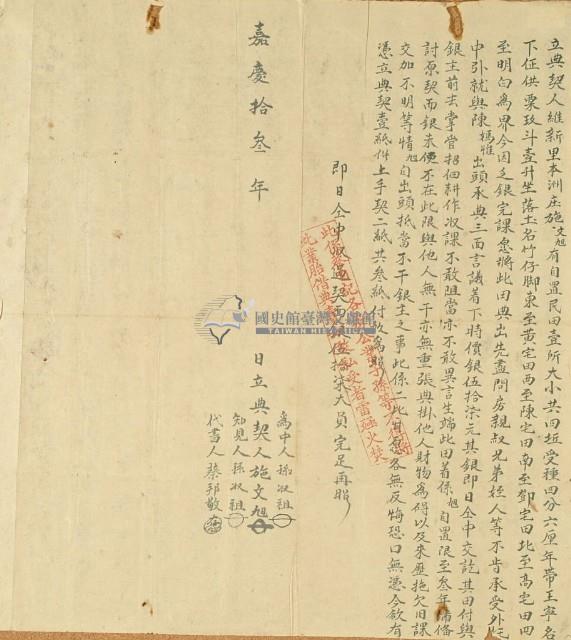 立典契人維新里本洲庄施文旭有自置民田壹所大小共四坵受種四分六厘年帶王寧名
下征供粟玖斗壹升坐落土名竹仔脚東至黃宅田西至陳宅田南至鄧宅田北至高宅田四
至明白為界今因乏銀完課愈將此田典出先盡問房親叔兄弟姪人等不肯承受外托
中引就與陳媽惟出頭承典三面言議着下時價銀伍拾柒元其銀即日仝中交訖其田付與
銀主前去掌管招佃耕作收課不敢阻當亦不敢異言生端此田着係旭自置限至叁年備
討原契而銀未便不在此限與他人無干亦無重張典掛他人財物為碍以及來歷拖欠旧課
交加不明等情旭自出頭抵當不干銀主之事此係二比甘愿各無反悔恐口無憑今欲有
憑立典契壹紙併上手契二紙共叁紙付收為照
即日仝中收過契面銀伍拾柒大員完足再照
嘉慶拾叁年
日立典契人施文旭
為中人孫淑祖
知見人孫淑祖
代書人蔡邦敬
國史館臺灣文獻館
TAIWAN HISTORICA